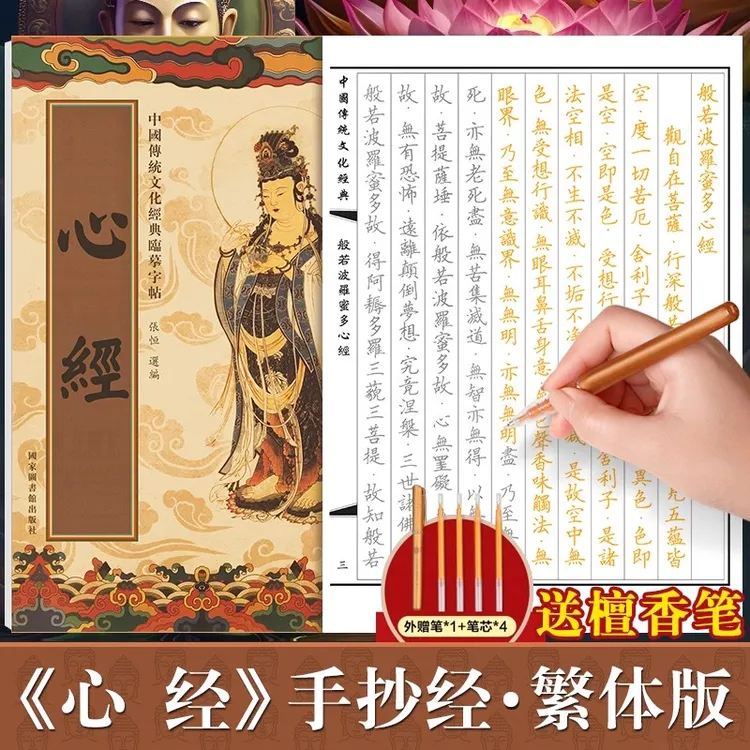 中國傳統文化經典臨摹字帖
心經
張恒 選編
國家圖書館出版社
般若波羅蜜多心經
觀自在菩薩·行深般 五蘊皆
空·度一切苦厄·舍利子 異色·色即
是空·空即是色·受想 舍利子·是諸
法空相·不生不滅·不垢不 減·是故空中無
色·無受想行識·無眼耳鼻舌身意 聲香味觸法·無
眼界·乃至無意識界·無無明·亦無無明盡·乃至
死·亦無老死盡·無苦集滅道·無智亦無得·以
故·菩提薩埵·依般若波羅蜜多故·心無罣礙
故·無有恐怖·遠離顛倒夢想·究竟涅槃·三世諸佛
般若波羅蜜多故·得阿耨多羅三藐三菩提·故知般若
中國傳統文化經典
般若波羅蜜多心經
三
外赠笔*1+笔芯*4
送檀香笔
《心 经》手抄经·繁体版